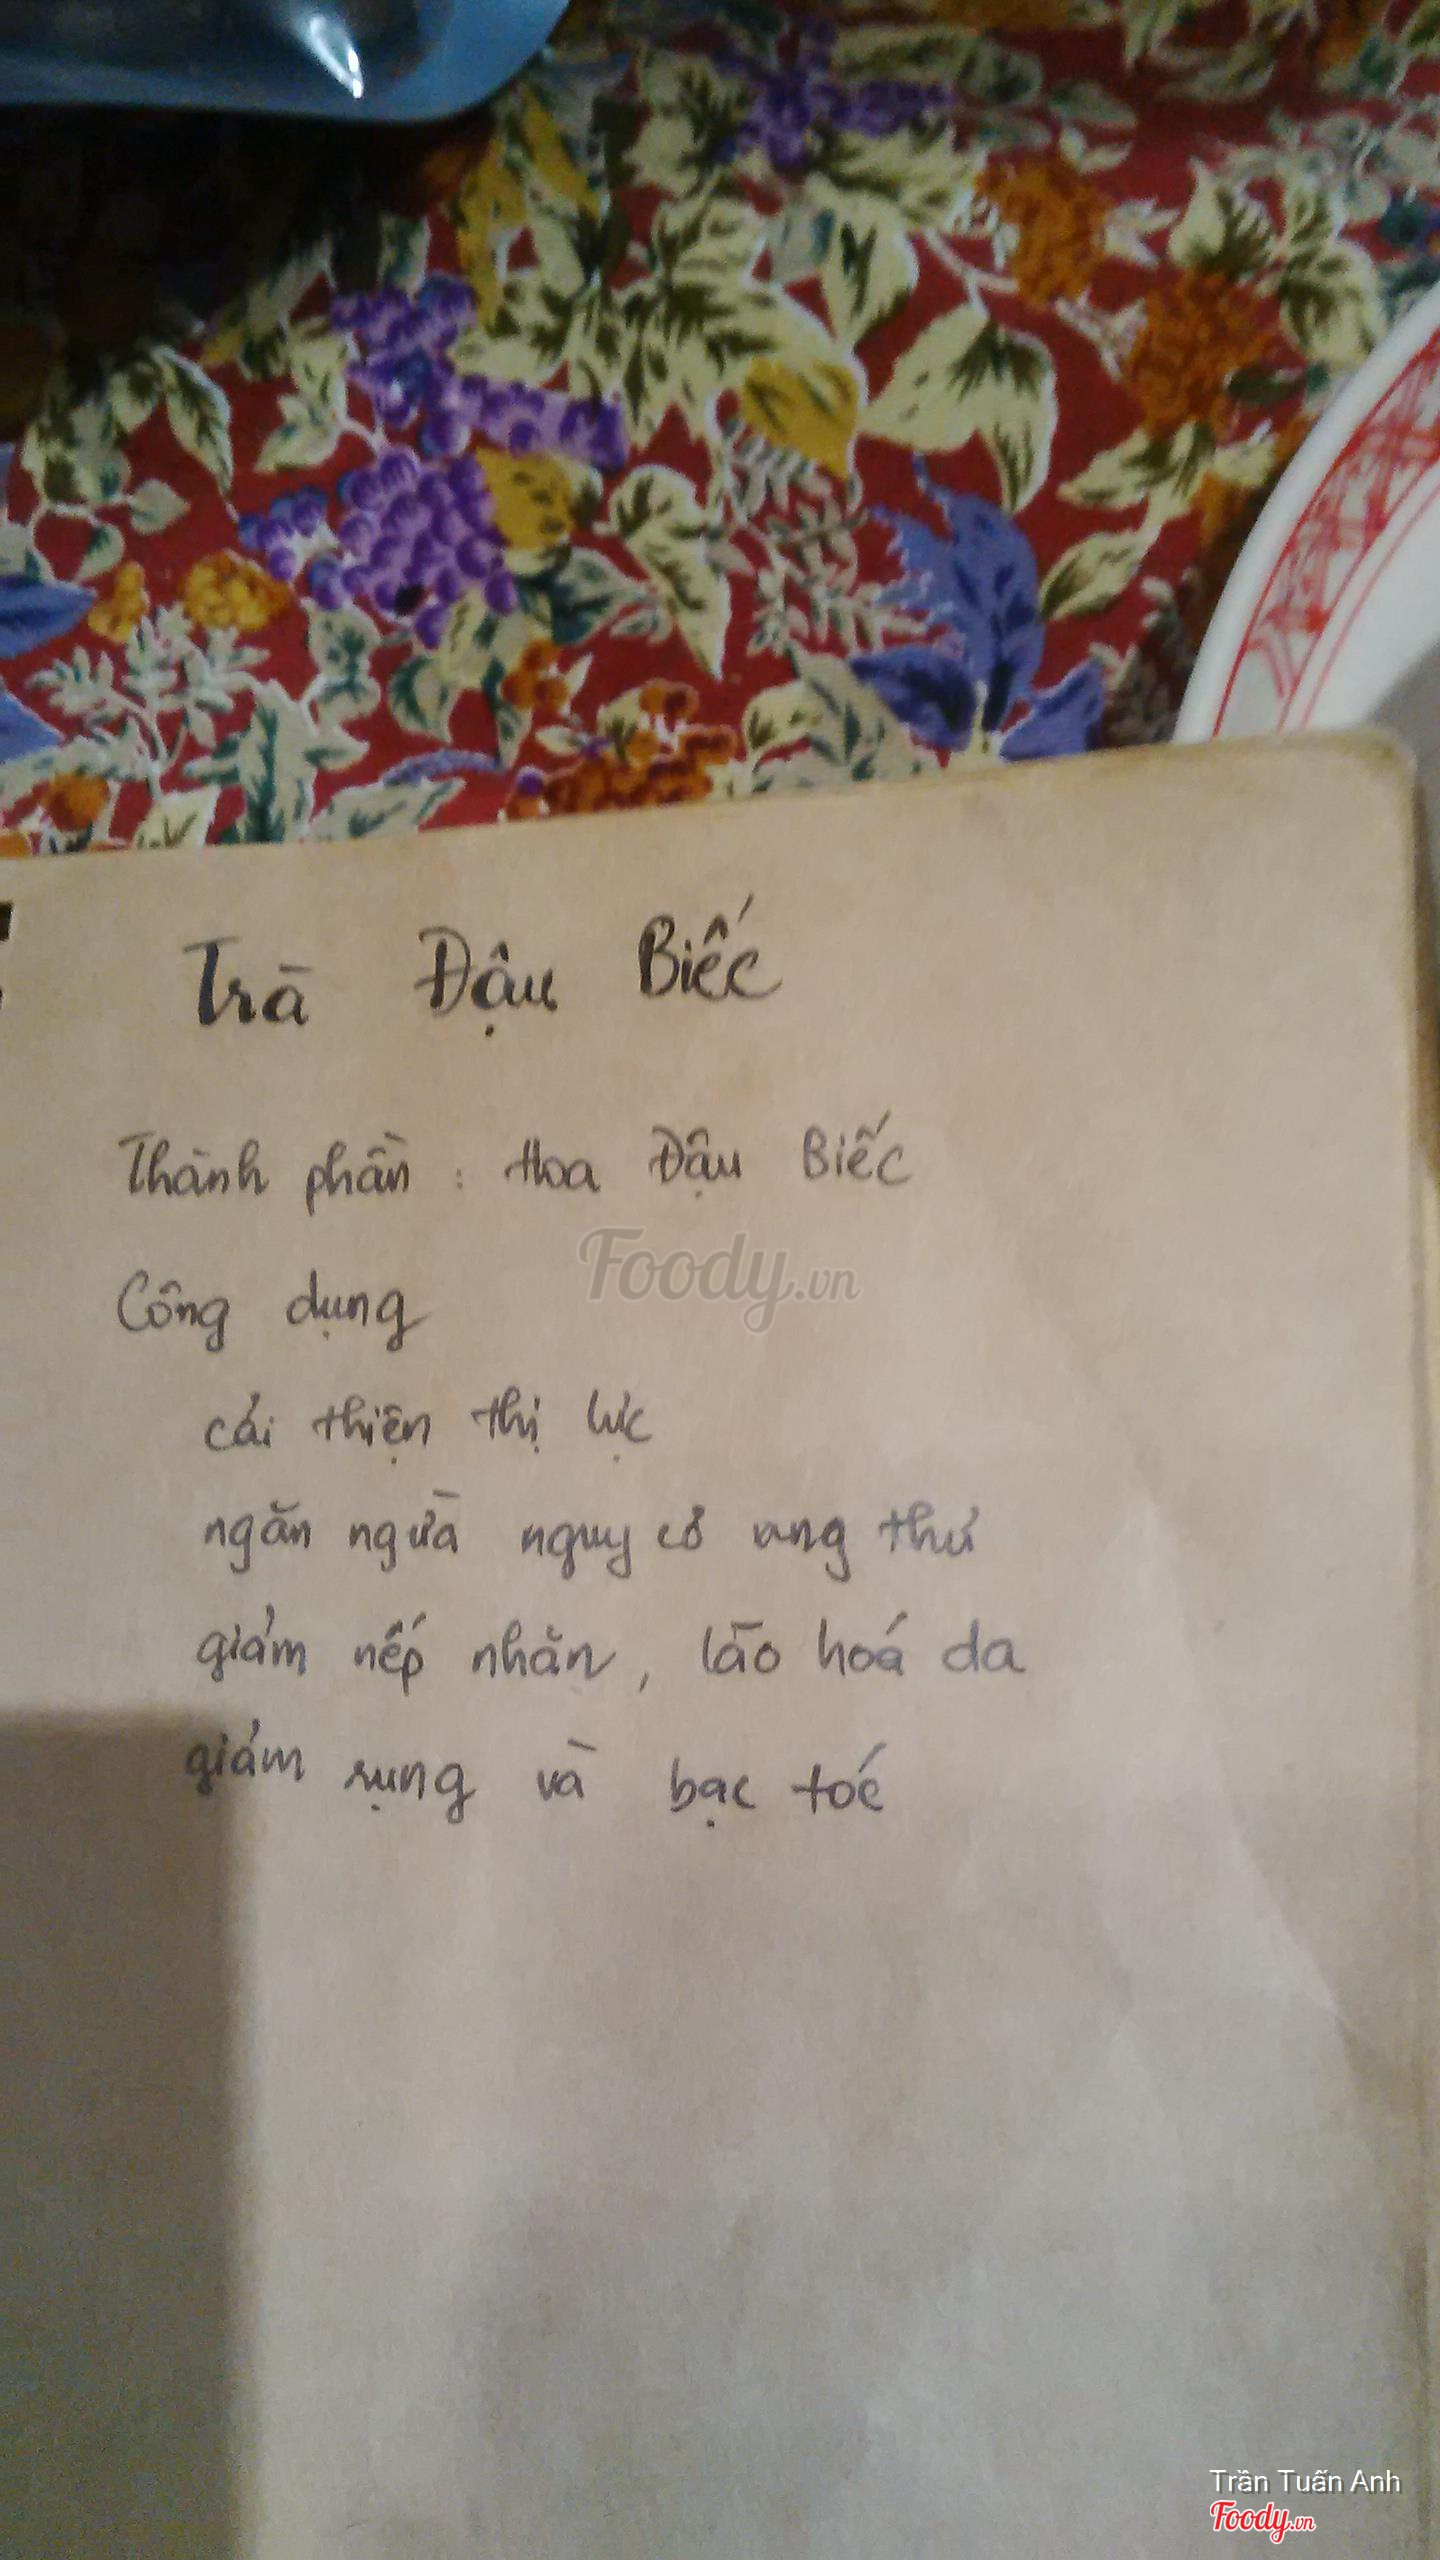 Trà Đậu Biếc
Thành phần : Hoa Đậu Biếc
Foody.vn
Công dụng
cải thiện thị lực
ngăn ngừa nguy cơ ung thư
giảm nếp nhăn, lão hoá da
giảm rụng và bạc tóc
Trần Tuấn Anh
Foody.vn